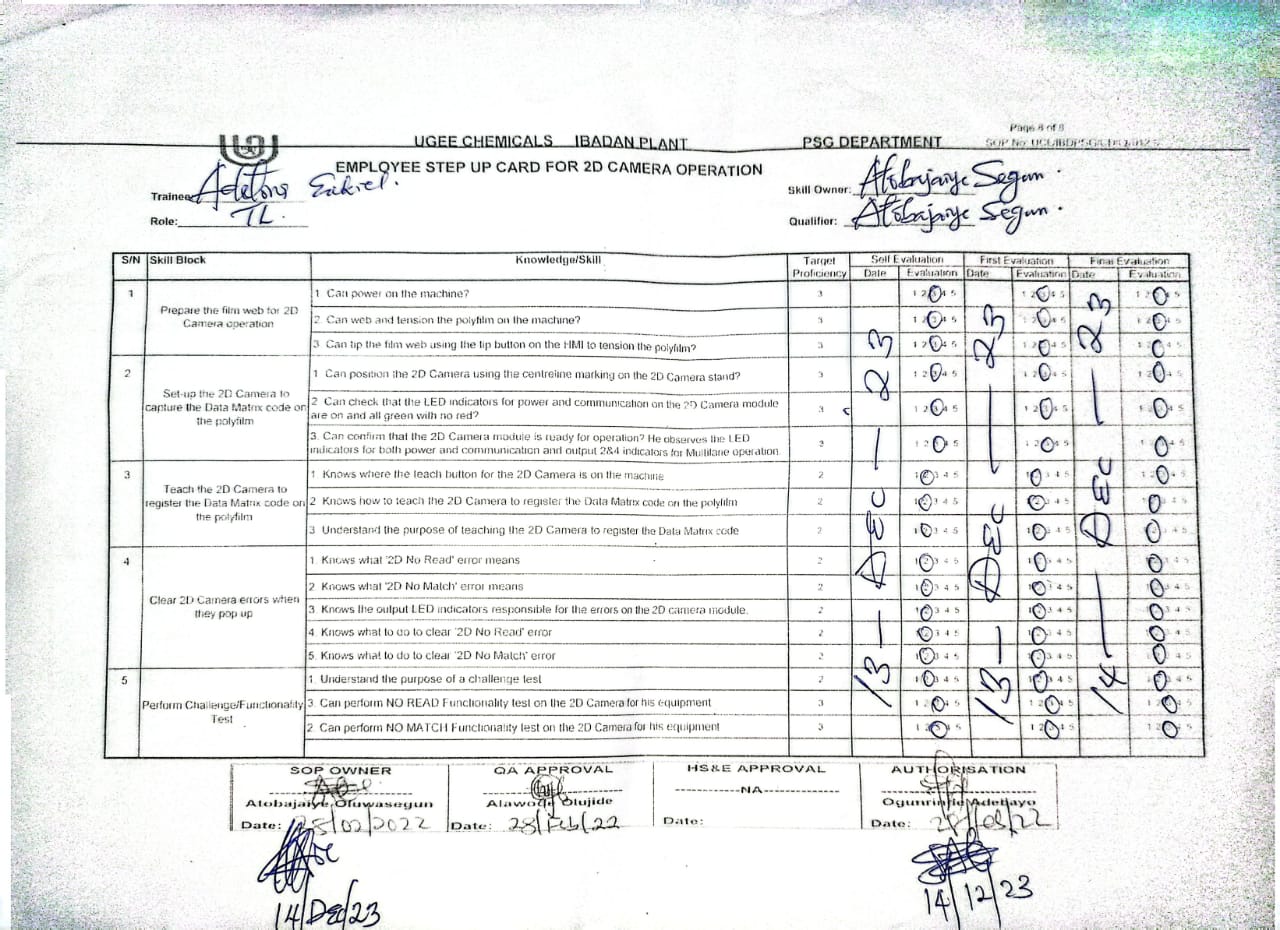 Page 8 of 8
UGEE CHEMICALS IBADAN PLANT PSG DEPARTMENT
EMPLOYEE STEP UP CARD FOR 2D CAMERA OPERATION
Trainee: Ezekiel.
Skill Owner: Atobajaiye Segun.
Role: TL.
Qualifier: Atobajaiye Segun.
S/N Skill Block Knowledge/Skill Target Proficiency Self Evaluation First Evaluation Final Evaluation
Date Evaluation Date Evaluation Date Evaluation
13 - DEC - 23
13 - DEC - 23
14 - DEC - 23
1 Prepare the film web for 2D Camera operation
1 Can power on the machine? 3
2. Can web and tension the polyfilm on the machine? 3
3. Can tip the film web using the tip button on the HMI to tension the polyfilm? 3
2 Set-up the 2D Camera to capture the Data Matrix code on the polyfilm
1 Can position the 2D Camera using the centreline marking on the 2D Camera stand? 3
2 Can check that the LED indicators for power and communication on the 2D Camera module are on and all green with no red? 3
3. Can confirm that the 2D Camera module is ready for operation? He observes the LED indicators for both power and communication and output 2&4 indicators for Multilane operation. 3
3 Teach the 2D Camera to register the Data Matrix code on the polyfilm
1 Knows where the teach button for the 2D Camera is on the machine 2
2 Knows how to teach the 2D Camera to register the Data Matrix code on the polyfilm 2
3 Understand the purpose of teaching the 2D Camera to register the Data Matrix code 2
4 Clear 2D Camera errors when they pop up
1. Knows what '2D No Read' error means 2
2. Knows what '2D No Match' error means 2
3. Knows the output LED indicators responsible for the errors on the 2D camera module. 2
4. Knows what to do to clear '2D No Read' error 2
5. Knows what to do to clear '2D No Match' error 2
5 Perform Challenge/Functionality Test
1. Understand the purpose of a challenge test 2
3. Can perform NO READ Functionality test on the 2D Camera for his equipment 3
2. Can perform NO MATCH Functionality test on the 2D Camera for his equipment 3
SOP OWNER QA APPROVAL HS&E APPROVAL AUTHORISATION
NA
Atobajaiye Oluwasegun Alawode Olujide Ogunrinde Adedayo
Date: 28/02/2022 Date: 28/Feb/22 Date: Date:
14/Dec/23 14/12/23